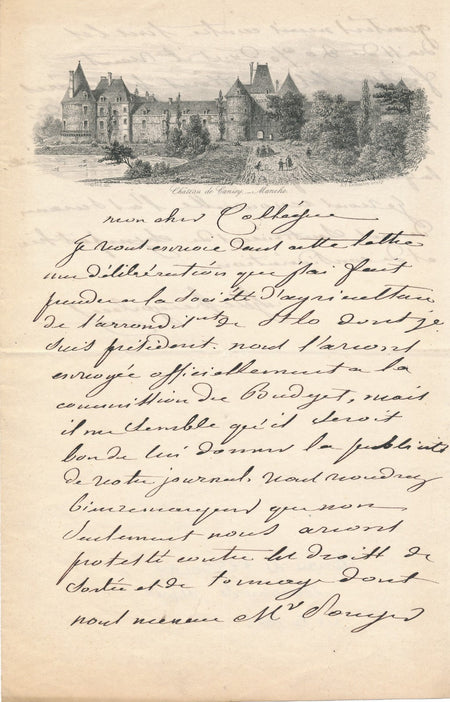 Château de Canisy _ Manche.
mon cher Collègue
Je vous envoie dans cette lettre
une délibération que j'ai fait
prendre a la Société d'agriculture
de l'arrondit de St lo dont je
suis président. nous l'avons
envoyée officiellement a la
commission du Budget, mais
il me semble qu'il seroit
bon de lui donner la publicité
de votre journal. vous voudrez
bien remarquer que non
seulement nous avons
protesté contre les droits de
sortie et de tonnage dont
nous menace Mr Pouyer